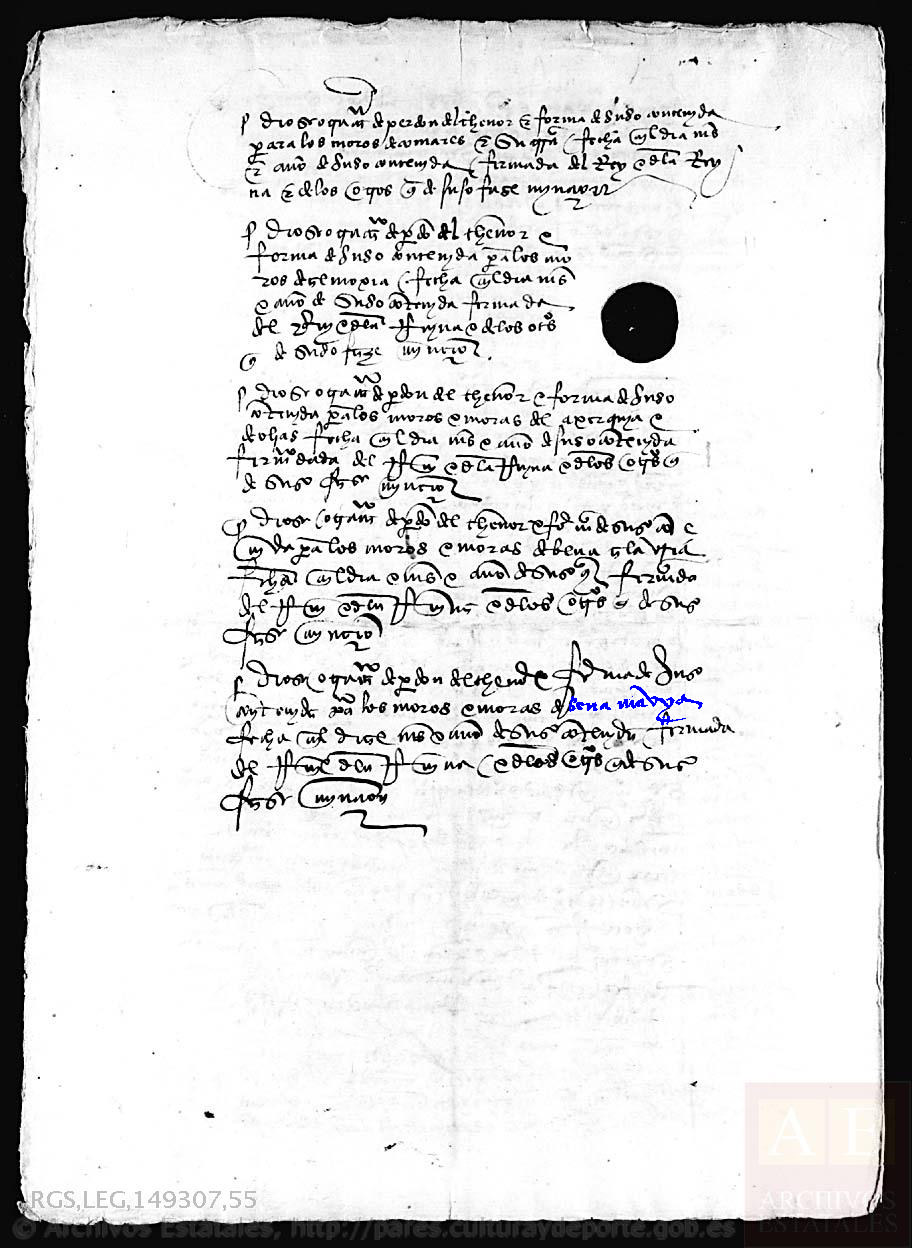 diose otra carta de perdon del thenor e forma de suso contenyda
para los moros de comares e su tierra fecha en el dia mes
e año de suso contenyda firmada del Rey e de la Rey
na e de los otros que de suso faze mynçion
diose otra carta de perdon del thenor e
forma de suso contenyda para los mo
ros de fecha en el dia mes
e año de suso contenyda firmada
del Rey e de la Reyna e de los otros
que de suso faze mynçion
diose otra carta de perdon del thenor e forma de suso
contenyda para los moros e moras del axerquya e
de olias fecha en el dia mes e año de suso contenyda
firmada del Rey e de la Reyna e de los otros que
de suso faze mynçion
diose otra carta de perdon del thenor e forma de suso con te
nyda para los moros e moras de
fecha en el dia e mes e año de suso firmada
del Rey e de la Reyna e de los otros que de suso
faze mynçion
diose otra carta de perdon del thenor e forma de suso
contenyda para los moros e moras de
fecha en el dia e mes e año de suso contenyda firmada
del Rey e de la Reyna e de los otros que de suso
faze mynçion
RGS,LEG,149307,55
AE
ARCHIVOS
ESTATALES
© Archivos Estatales, http://pares.culturaydeporte.gob.es